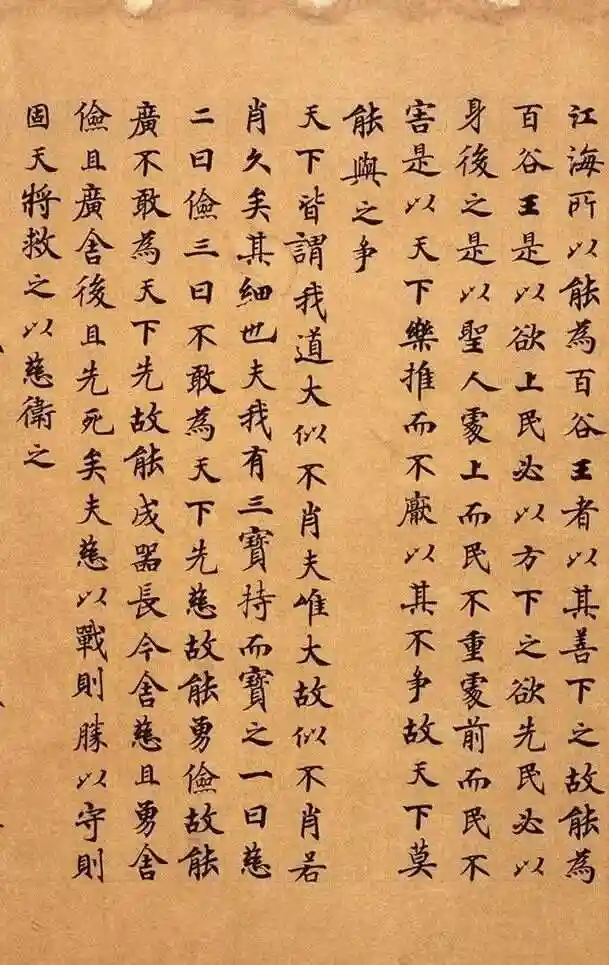 江海所以能為百谷王者以其善下之故能為
百谷王是以欲上民必以方下之欲先民必以
身後之是以聖人處上而民不重處前而民不
害是以天下樂推而不厭以其不争故天下莫
能與之争
天下皆謂我道大似不肖夫唯大故似不肖若
肖久矣其細也夫我有三寶持而寶之一曰慈
二曰儉三曰不敢為天下先慈故能勇儉故能
廣不敢為天下先故能成器長今舍慈且勇舍
儉且廣舍後且先死矣夫慈以戰則勝以守則
固天將救之以慈衛之